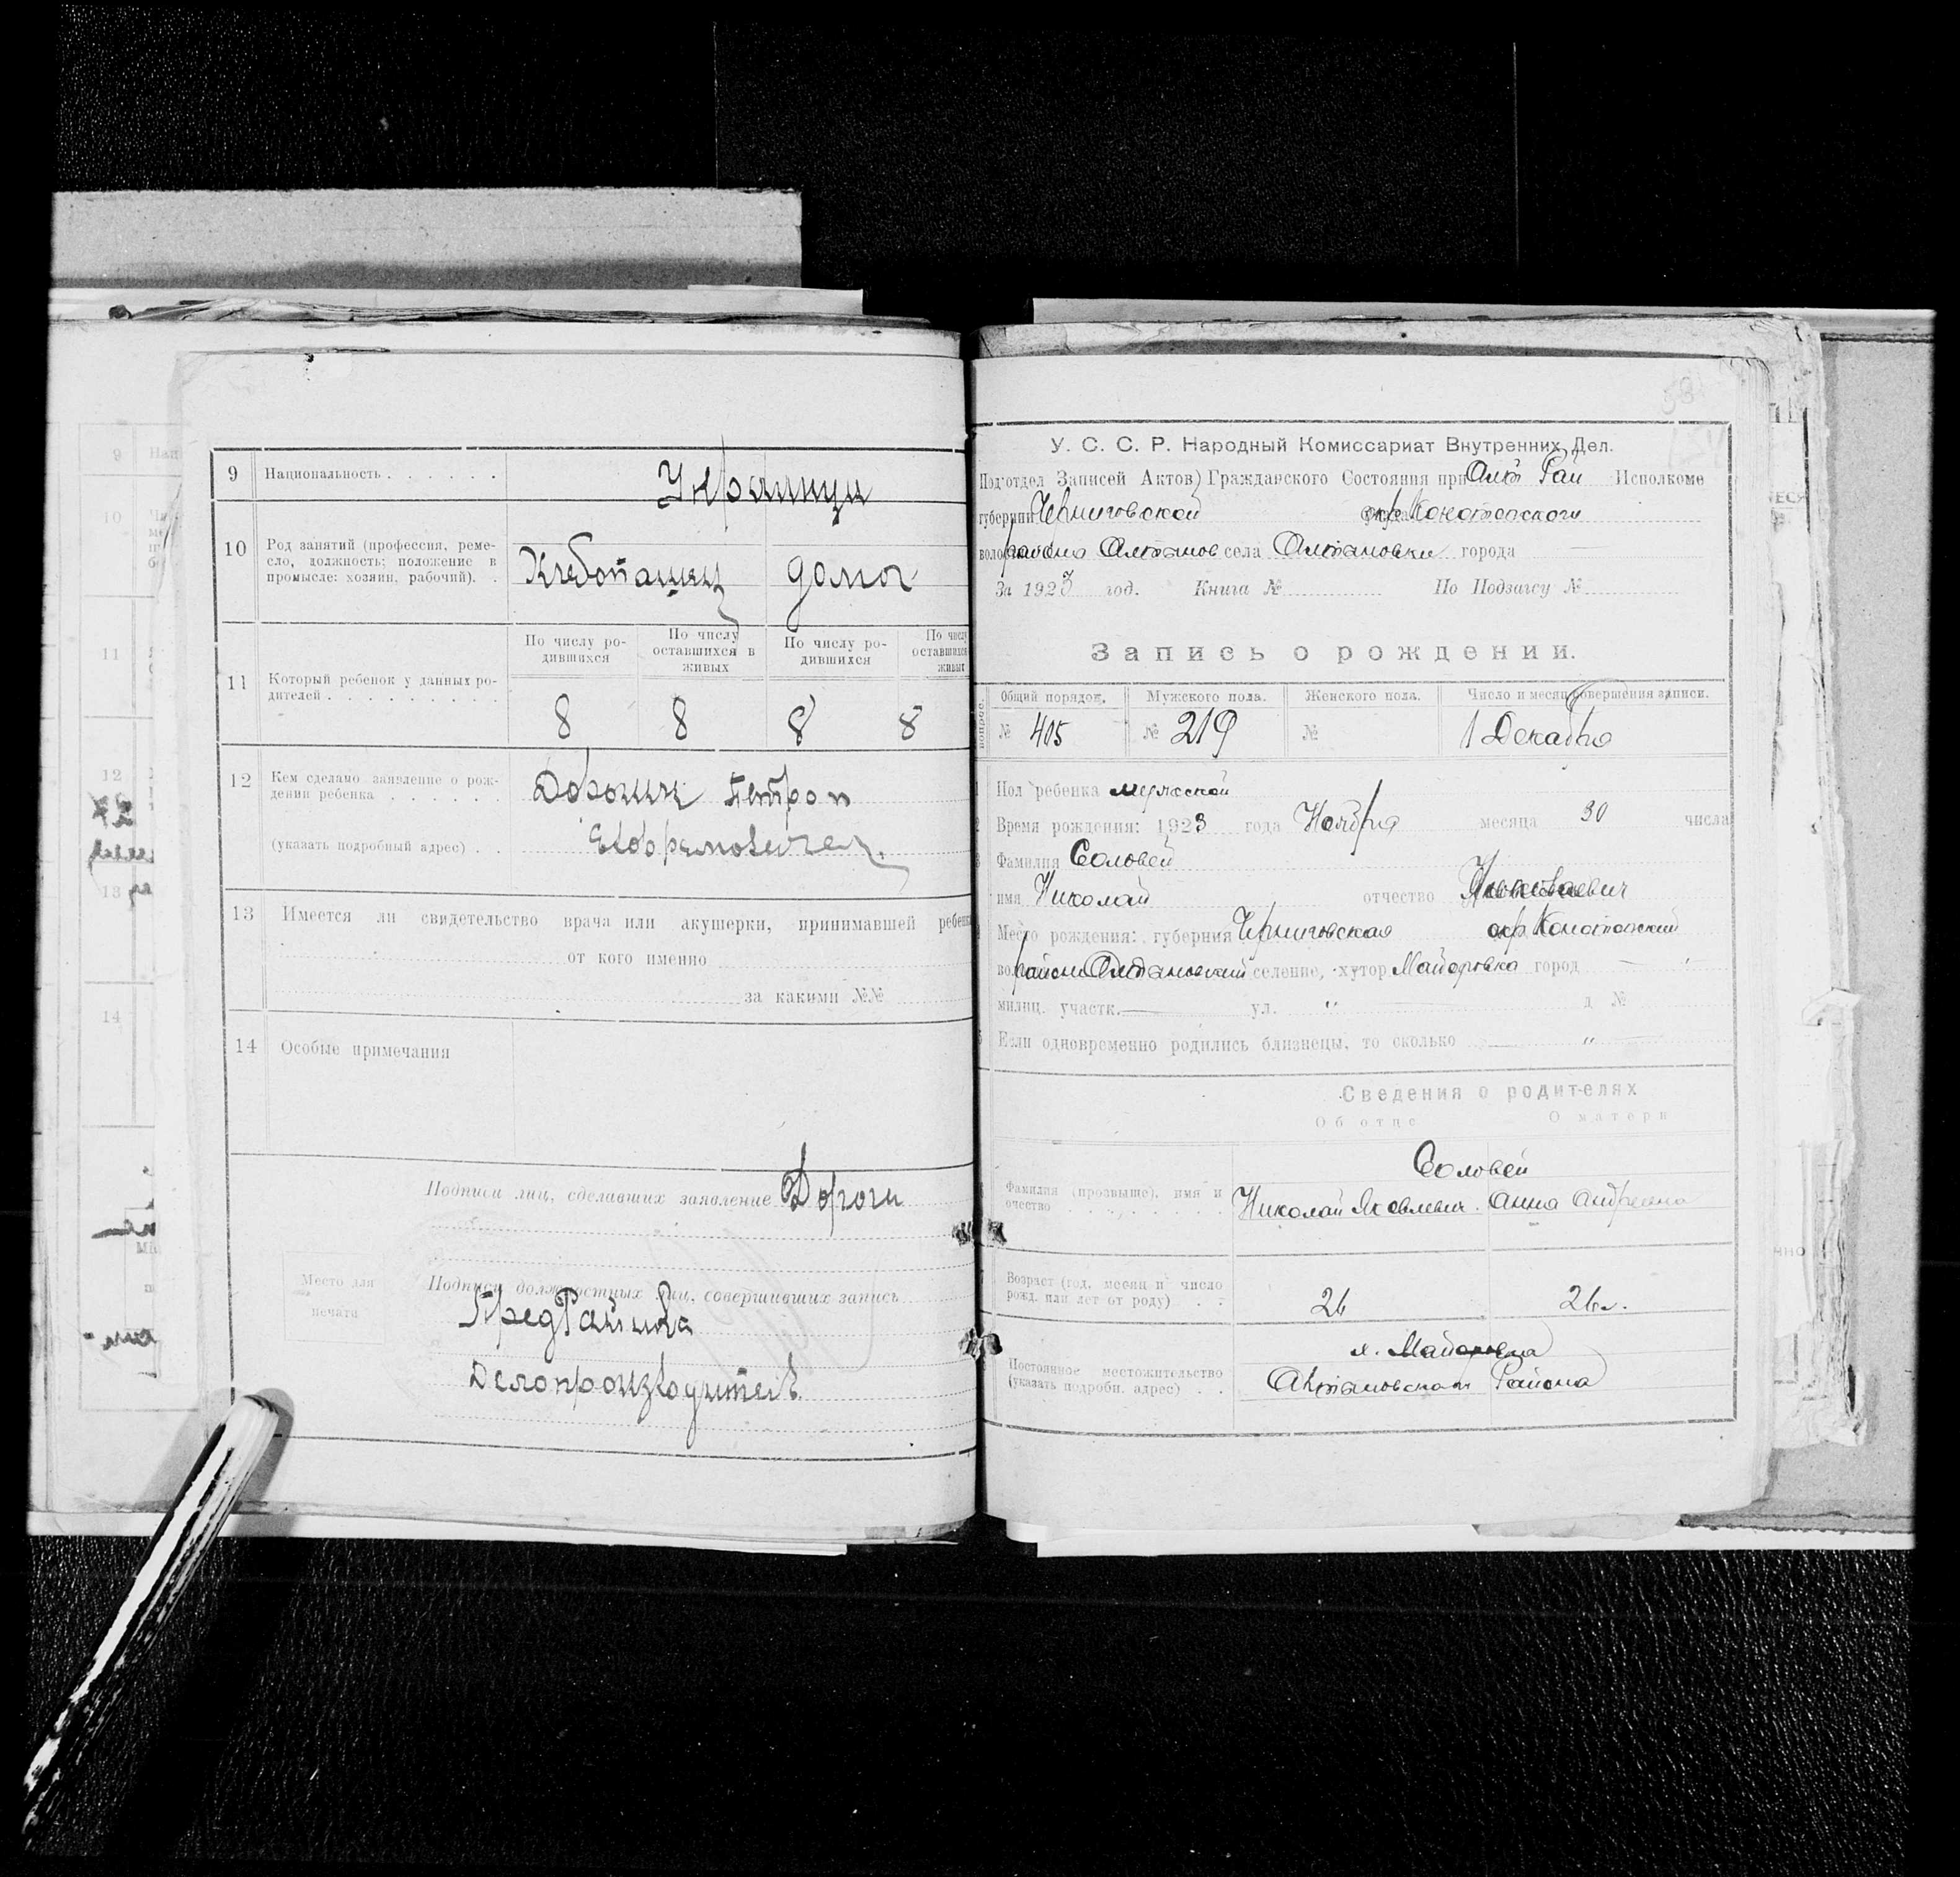 9 Национальность . . . . . . Украинци
10 Род занятий (профессия, реме-
сло, должность; положение в
промысле: хозяин, рабочий). .
Хлебопашец дома
11 Который ребенок у данных ро-
дителей . . . . . . . . . .
По числу ро-
дившихся
По числу
оставшихся в
живых
По числу ро-
дившихся
По числу
оставшихся
живых
8 8 8 8
12 Кем сделано заявление о рож-
дении ребенка . . . . . .
(указать подробный адрес) . .
Петром
13 Имеется ли свидетельство врача или акушерки, принимавшей ребенка
от кого именно
за какими №№
14 Особые примечания
Подписи лиц, сделавших заявление
Место для
печати
Подписи должностных лиц, совершивших запись
Делопроизводитель
У. С. С. Р. Народный Комиссариат Внутренних Дел.
Под'отдел Записей Актов Гражданского Состояния при Рай Исполкоме
губернии Черниговской окр Конотопского
района села города —
За 1923 год. Книга № По Подзагсу №
Запись о рождении.
Общий порядок. Мужского пола. Женского пола. Число и месяц совершения записи.
№ 405 № 219 № 1 Декабря
Пол ребенка мужской
Время рождения: 1923 года Ноября месяца 30 числа
Фамилия Соловей
имя Николай отчество
Место рождения: губерния Черниговская окр Конотопский
селение, хутор Майоровка город —
милиц. участк. — ул. " д №
Если одновременно родились близнецы, то сколько — "
Сведения о родителях
Об отце О матери
Соловей
Фамилия (прозвище), имя и
очество . . . . . . . .
Николай Яковлевич. Анна Андреевна
Возраст (год, месяц и число
рожд. или лет от роду) . .
26 26 л.
х. Майоровка
Постоянное местожительство
(указать подробн. адрес) . .
Района